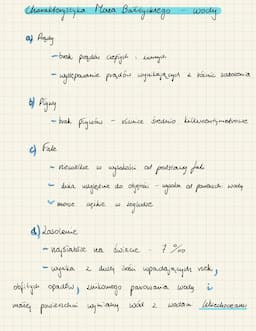 Charakterystyka Morza Bałtyckiego - wody
a) Prądy
- brak prądów ciepłych i zimnych
- występowanie prądów wynikających z różnic zasolenia
b) Pływy
- brak pływów - różnice średnio kilkucentymetrowe
c) Fale
- niewielkie w wysokości od podstawy fali
- duża względnie do objętości - wysoka od powierzch wody
- morze ciężkie w żegludze
d) Zasolenie
- najsłabsze na świecie - 7 ‰
- wynika z dużej ilości wpadających rzek,
obfitych opadów, znikomego parowania wody i
małej powierzchni wymiany wód z wodami Wszechoceanu